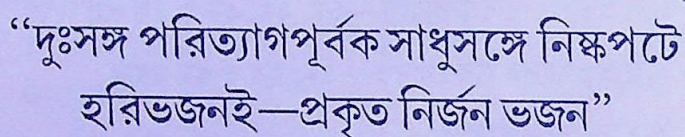 “দুঃসঙ্গ পরিত্যাগপূর্বক সাধুসঙ্গে নিষ্কপটে
হরিভজনই—প্রকৃত নির্জন ভজন”